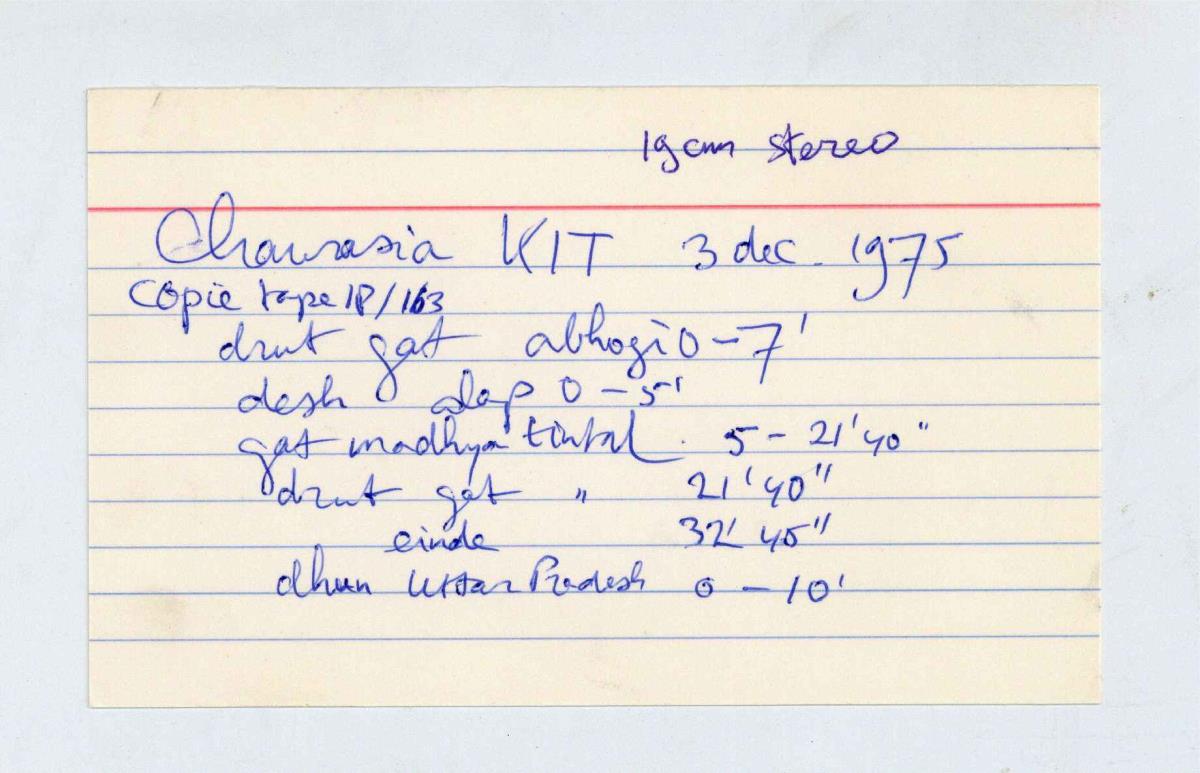 19 cm stereo
Chaurasia KIT 3 dec. 1975
copie tape 18/163
drut gat abhogi 0 - 7'
desh alap 0 - 5'
gat madhya tintal. 5 - 21'40"
drut gat " 21'40"
einde 32'45"
dhun Uttar Pradesh 0 - 10'